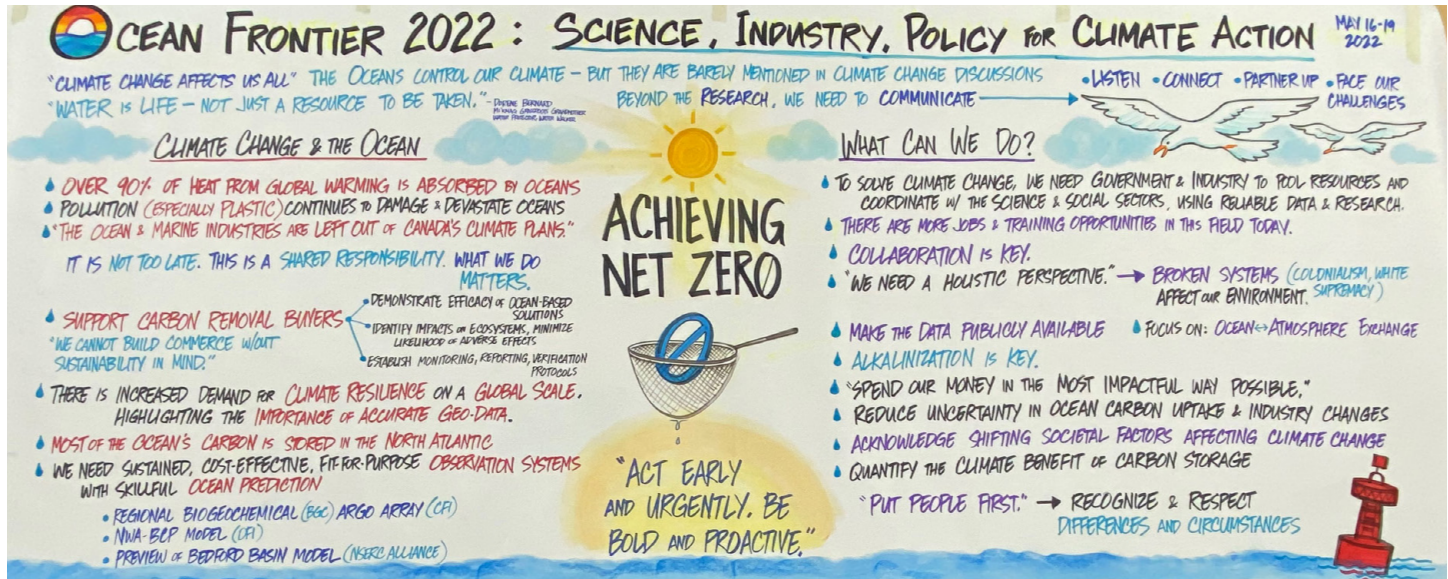 OCEAN FRONTIER 2022: SCIENCE, INDUSTRY, POLICY FOR CLIMATE ACTION
MAY 16-19
2022
"CLIMATE CHANGE AFFECTS US ALL" THE OCEANS CONTROL OUR CLIMATE – BUT THEY ARE BARELY MENTIONED IN CLIMATE CHANGE DISCUSSIONS
"WATER IS LIFE – NOT JUST A RESOURCE TO BE TAKEN."
BEYOND THE RESEARCH, WE NEED TO COMMUNICATE →
• LISTEN • CONNECT • PARTNER UP • FACE OUR
CHALLENGES
CLIMATE CHANGE & THE OCEAN
OVER 90% OF HEAT FROM GLOBAL WARMING IS ABSORBED BY OCEANS
POLLUTION (ESPECIALLY PLASTIC) CONTINUES TO DAMAGE & DEVASTATE OCEANS
"THE OCEAN & MARINE INDUSTRIES ARE LEFT OUT OF CANADA'S CLIMATE PLANS."
IT IS NOT TOO LATE. THIS IS A SHARED RESPONSIBILITY. WHAT WE DO
MATTERS.
SUPPORT CARBON REMOVAL BUYERS
• DEMONSTRATE EFFICACY OF OCEAN-BASED
SOLUTIONS
• IDENTIFY IMPACTS ON ECOSYSTEMS, MINIMIZE
LIKELIHOOD OF ADVERSE EFFECTS
• ESTABLISH MONITORING, REPORTING, VERIFICATION
PROTOCOLS
"WE CANNOT BUILD COMMERCE W/OUT
SUSTAINABILITY IN MIND."
THERE IS INCREASED DEMAND FOR CLIMATE RESILIENCE ON A GLOBAL SCALE.
HIGHLIGHTING THE IMPORTANCE OF ACCURATE GEO-DATA.
MOST OF THE OCEAN'S CARBON IS STORED IN THE NORTH ATLANTIC
WE NEED SUSTAINED, COST-EFFECTIVE, FIT-FOR-PURPOSE OBSERVATION SYSTEMS
WITH SKILLFUL OCEAN PREDICTION
• REGIONAL BIOGEOCHEMICAL (BGC) ARGO ARRAY (CFI)
• NWA-BCP MODEL (OFI)
• PREVIEW OF BEDFORD BASIN MODEL (NSERC ALLIANCE)
ACHIEVING
NET ZERO
0
"ACT EARLY
AND URGENTLY. BE
BOLD AND PROACTIVE."
WHAT CAN WE DO?
TO SOLVE CLIMATE CHANGE, WE NEED GOVERNMENT & INDUSTRY TO POOL RESOURCES AND
COORDINATE W/ THE SCIENCE & SOCIAL SECTORS, USING RELIABLE DATA & RESEARCH.
THERE ARE MORE JOBS & TRAINING OPPORTUNITIES IN THIS FIELD TODAY.
COLLABORATION IS KEY.
"WE NEED A HOLISTIC PERSPECTIVE." → BROKEN SYSTEMS (COLONIALISM, WHITE
SUPREMACY)
AFFECT OUR ENVIRONMENT.
MAKE THE DATA PUBLICLY AVAILABLE
FOCUS ON: OCEAN↔ATMOSPHERE EXCHANGE
ALKALINIZATION IS KEY.
"SPEND OUR MONEY IN THE MOST IMPACTFUL WAY POSSIBLE."
REDUCE UNCERTAINTY IN OCEAN CARBON UPTAKE & INDUSTRY CHANGES
ACKNOWLEDGE SHIFTING SOCIETAL FACTORS AFFECTING CLIMATE CHANGE
QUANTIFY THE CLIMATE BENEFIT OF CARBON STORAGE
"PUT PEOPLE FIRST." → RECOGNIZE & RESPECT
DIFFERENCES AND CIRCUMSTANCES